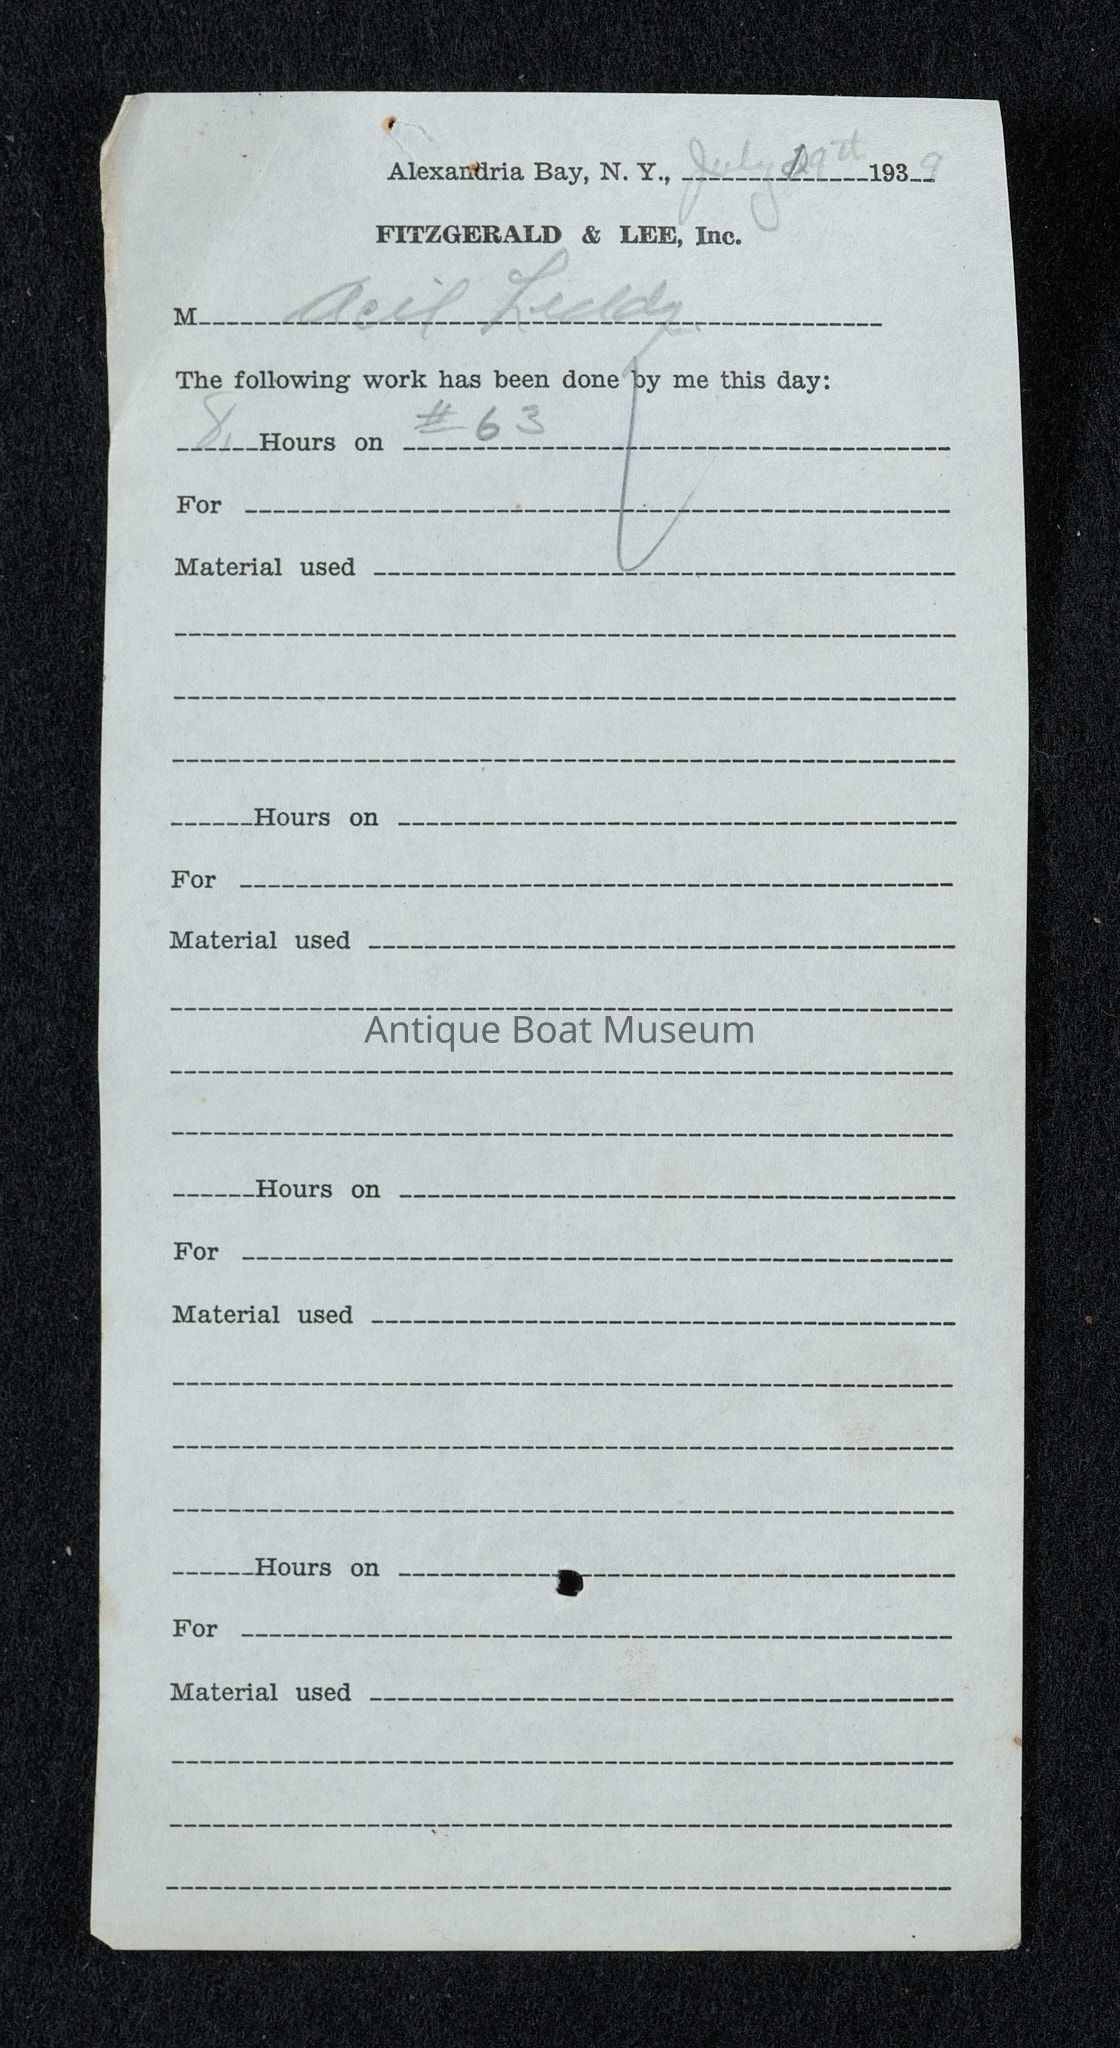 Alexandria Bay, N. Y., July 19th 1939
FITZGERALD & LEE, Inc.
M Acil Leddy
The following work has been done by me this day:
8 Hours on #63
For
Material used
Hours on
For
Material used
Antique Boat Museum
Hours on
For
Material used
Hours on
For
Material used